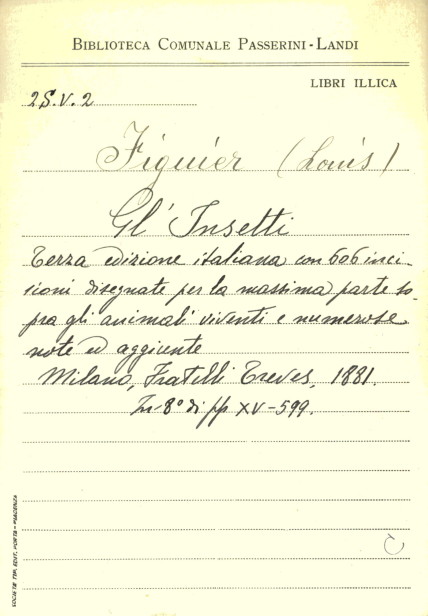 BIBLIOTECA COMUNALE PASSERINI-LANDI
LIBRI ILLICA
2S.V.2
Figuier (Louis)
Gl' Insetti
Terza edizione italiana con 606 inci-
sioni disegnate per la massima parte so-
pra gli animali viventi e numerose
note ed aggiunte
Milano, Fratelli Treves, 1881.
In-8° di pp XV-599.
SOCIETÀ TIP. EDIT. PORTA - PIACENZA